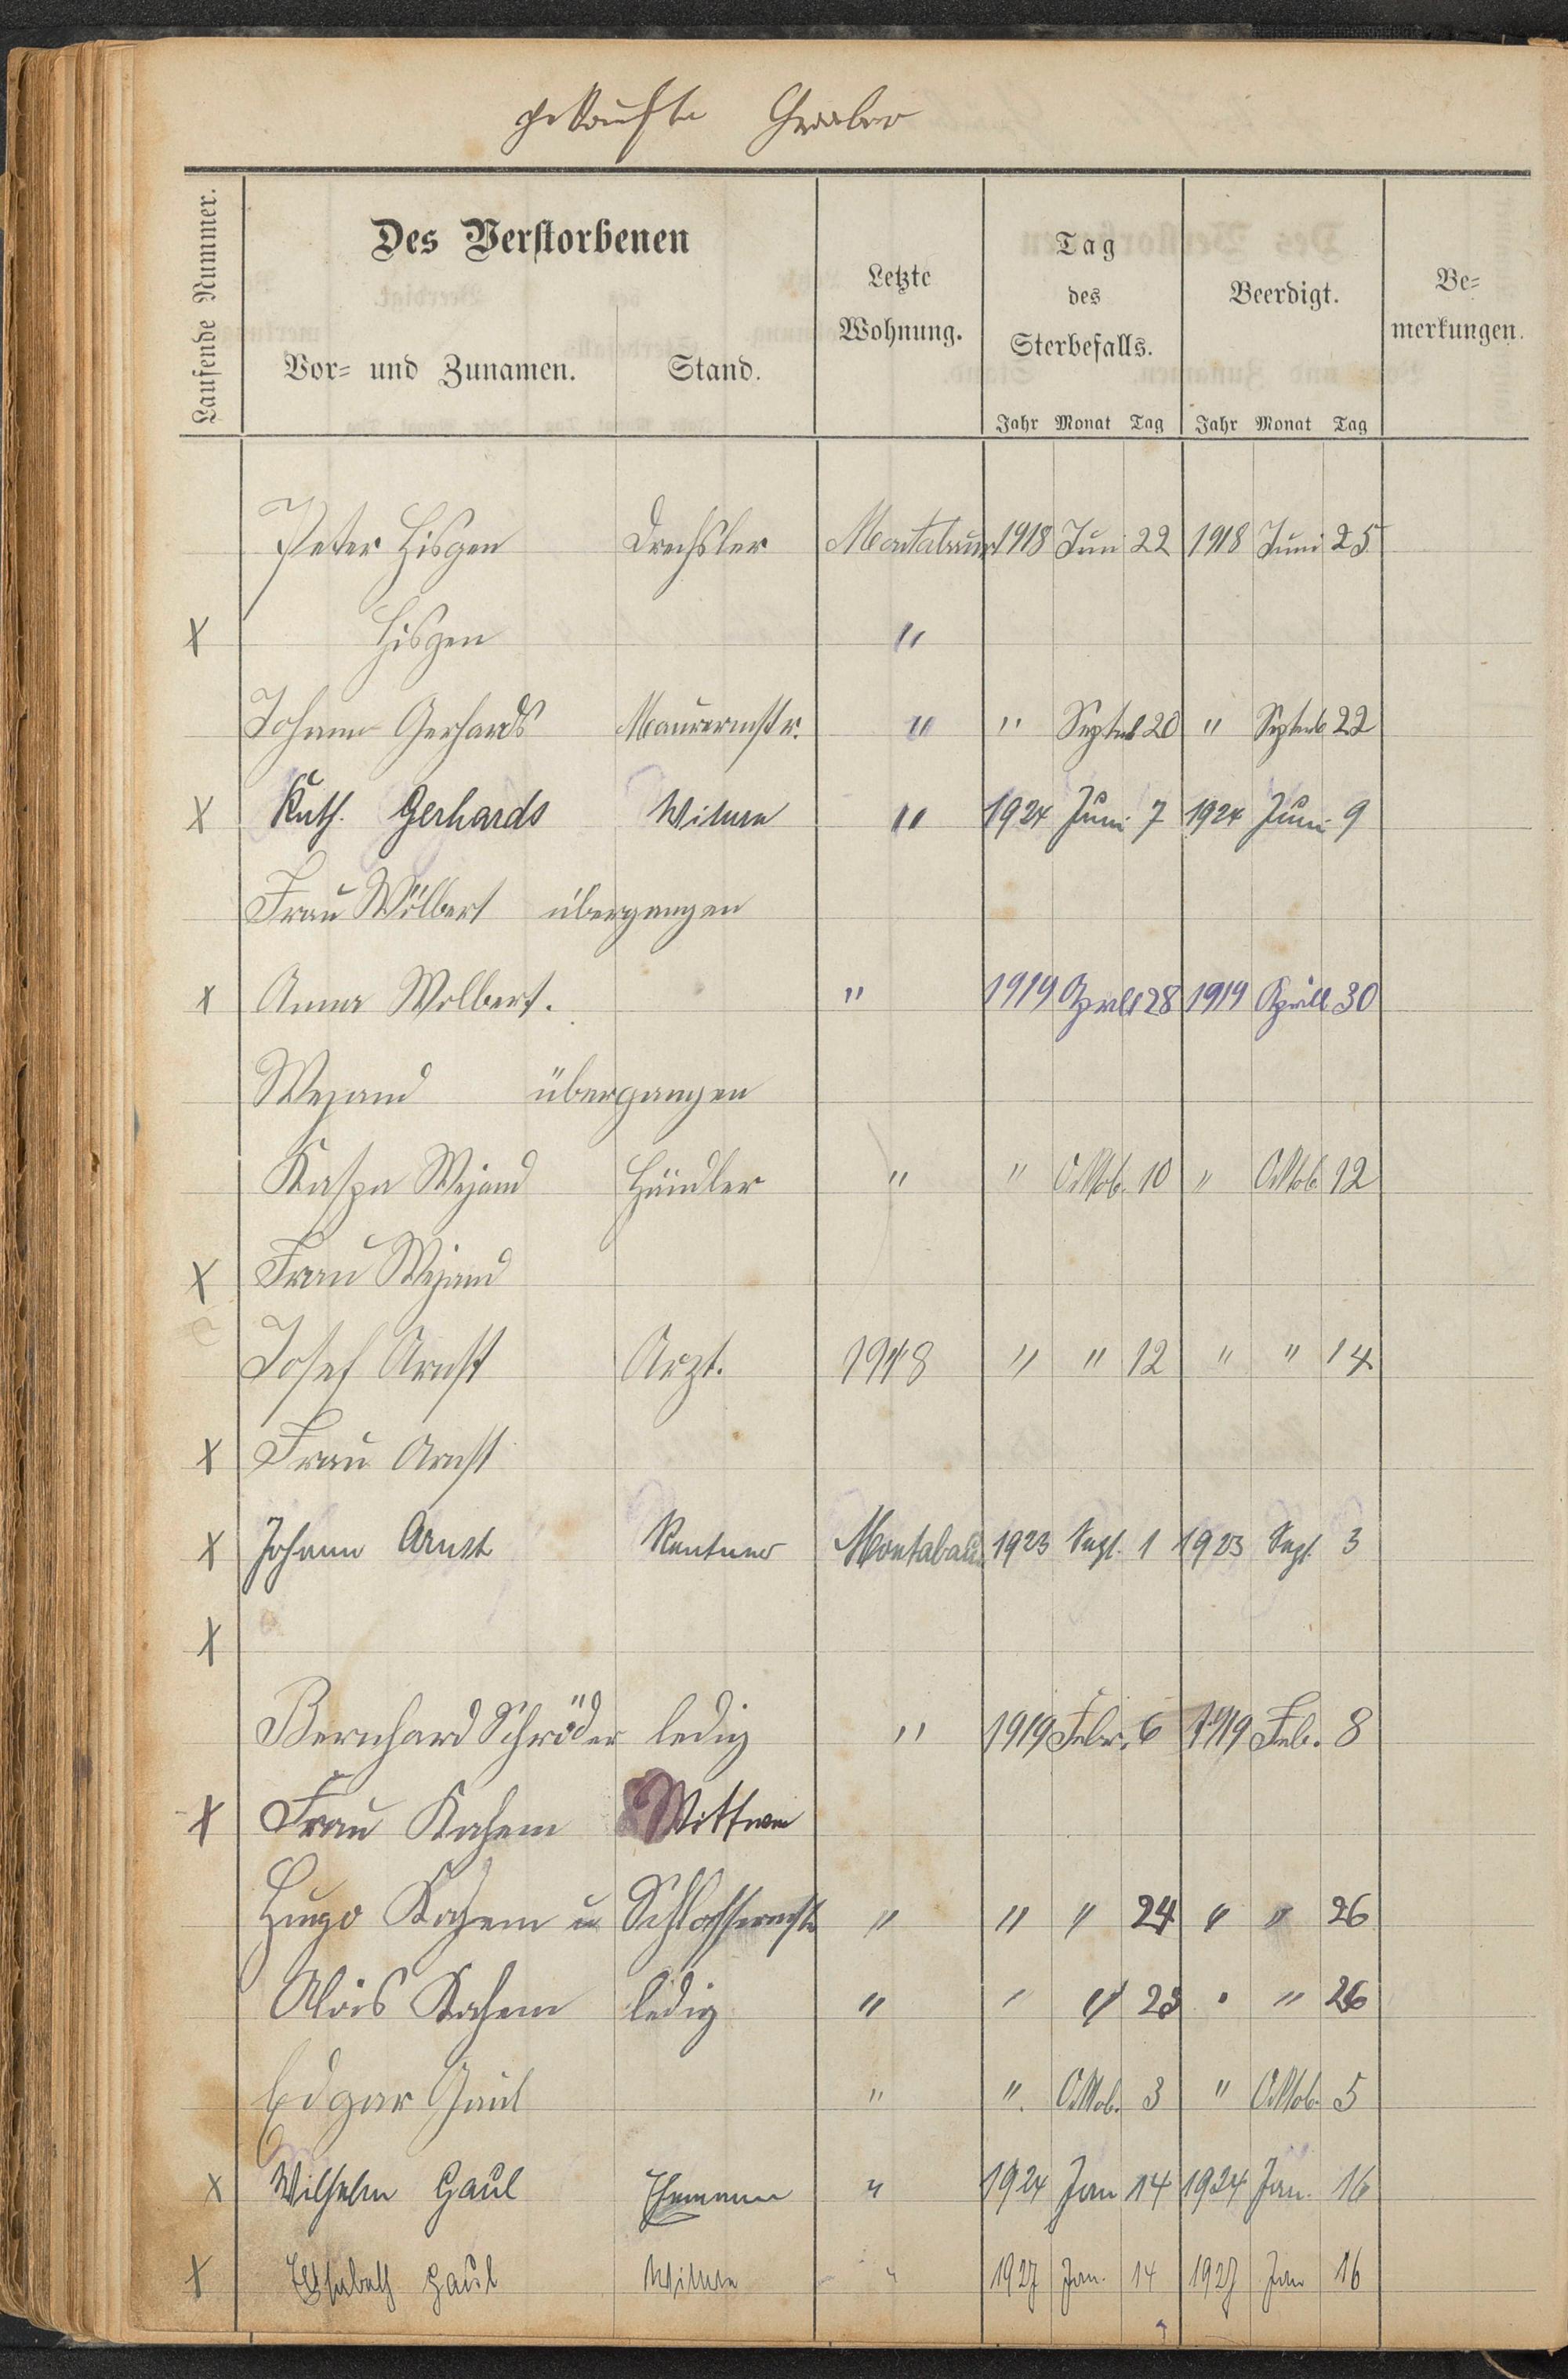 gekaufte Gräber
Laufende Nummer.
Des Verstorbenen
Vor- und Zunamen.
Stand.
Letzte
Wohnung.
Tag
des
Sterbefalls.
Beerdigt.
Be-
merkungen.
Jahr Monat Tag Jahr Monat Tag
Peter Hisgen Drechsler Montabaur 1918 Juni 22 1918 Juni 25
X Hisgen "
Johann Gerhards Maurermstr. " " Septemb 20 " Septemb 22
X Kath. Gerhards Witwe " 1924 Juni 7 1924 Juni 9
Frau Wölbert übergangen
x Anna Wolbert. " 1919 April 28 1919 Aprill 30
Weyand übergangen
Kaspa Weyand Händler " " Oktob. 10 " Oktob. 12
X Frau Weyand
Josef Arnst Arzt. 1918 " " 12 " " 14
X Frau Arnst
X Johann Arnst Rentner Montabaur 1923 Sept. 1 1923 Sept. 3
X
Bernhard Schröder ledig " 1919 Febr. 6 1919 Feb. 8
X Frau Kahem Wittwe
Hugo Kahem u Schlossermstr " " " 24 " " 26
Alois Kahem ledig " " " 23 " " 26
Edgar Gaul " " Oktob. 3 " Oktob. 5
X Wilhelm Gaul Ehemann " 1924 Jan 14 1924 Jan. 16
X Elisabeth Gaul Witwe " 1927 Jan. 14 1927 Jan 16